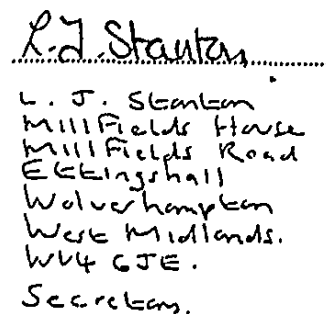 L.J. Stanton
L. J. Stanton
Millfields House
Millfields Road
Ettingshall
Wolverhampton
West Midlands.
WV4 6JE.
Secretary.